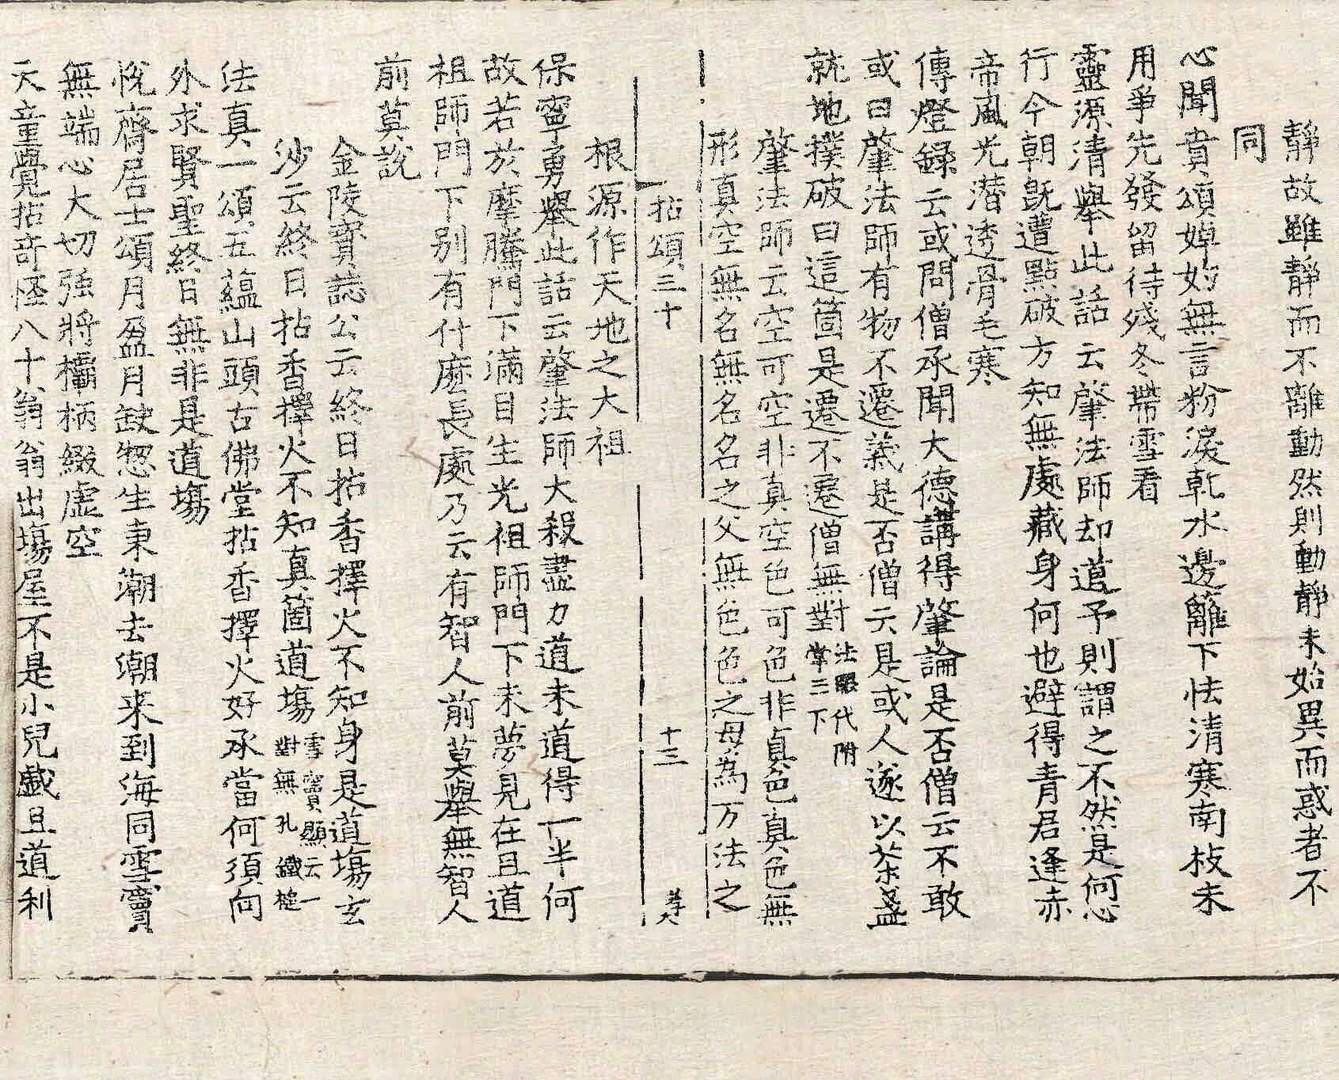 靜故雖靜而不離動然則動靜未始異而惑者不
同
心聞賁頌婥妁無言粉淚乾水邊籬下怯清寒南枝未
用爭先發留待殘冬帶雪看
靈源清舉此話云肇法師却道予則謂之不然是何心
行今朝旣遭點破方知無處藏身何也避得青君逢赤
帝風光潜透骨毛寒
傳燈録云或問僧承聞大德講得肇論是否僧云不敢
或曰肇法師有物不遷義是否僧云是或人遂以茶盞
就地撲破曰這箇是遷不遷僧無對 法眼代附掌三下
肇法師云空可空非真空色可色非眞色真色無
形真空無名無名名之父無色色之母爲万法之
拈頌三十 十三 孝大
根源作天地之大祖
保寧勇舉此話云肇法師大殺盡力道未道得一半何
故若於摩騰門下滿目生光祖師門下未夢見在且道
祖師門下別有什麽長處乃云有智人前莫舉無智人
前莫說
金陵寶誌公云終日拈香擇火不知身是道場玄
沙云終日拈香擇火不知真箇道場 雪竇顯云一對無孔鐵槌
法真一頌五蘊山頭古佛堂拈香擇火好承當何須向
外求賢聖終日無非是道場
悅齋居士頌月盈月缺惣生東潮去潮来到海同雪竇
無端心大切強將欛柄綴虛空
天童覺拈奇怪八十翁翁出場屋不是小兒戲且道利